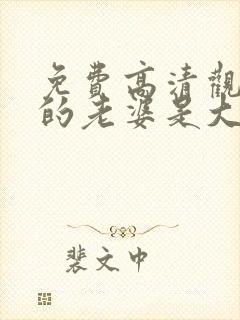 免費高清觀
的老婆是大
裴文中